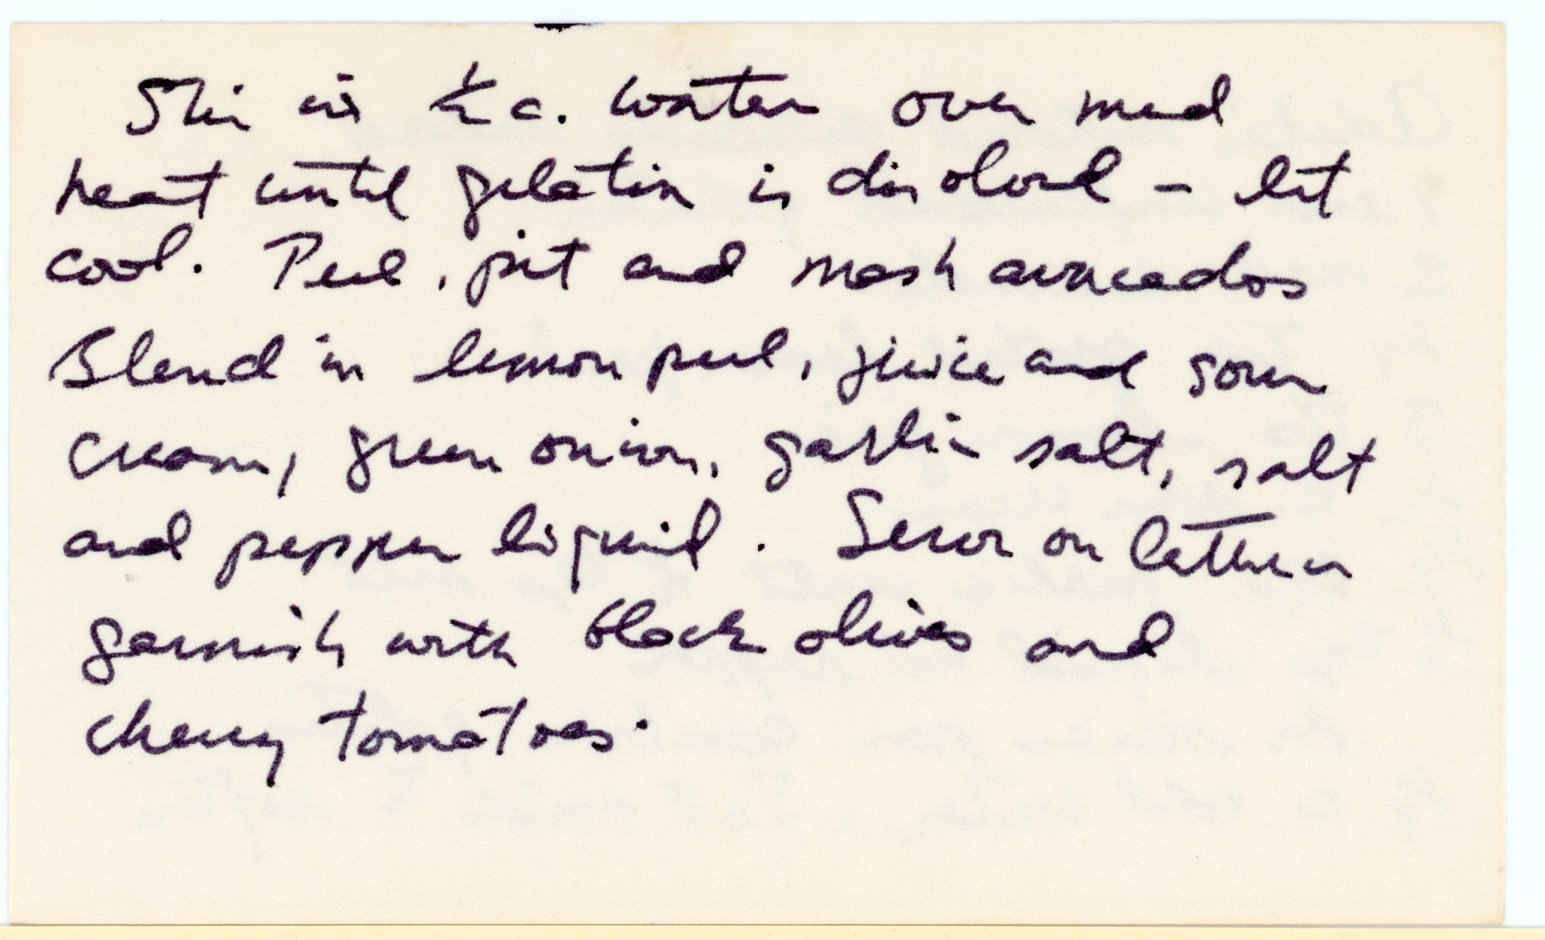 Stir in ½ c. water over med
heat until gelatin is disolved - let
cool. Peel, pit and mash avacados
Blend in lemon peel, juice and sour
cream, green onion, garlic salt, salt
and pepper liquid. Serve on lettuce
garnish with black olives and
cherry tomatoes.